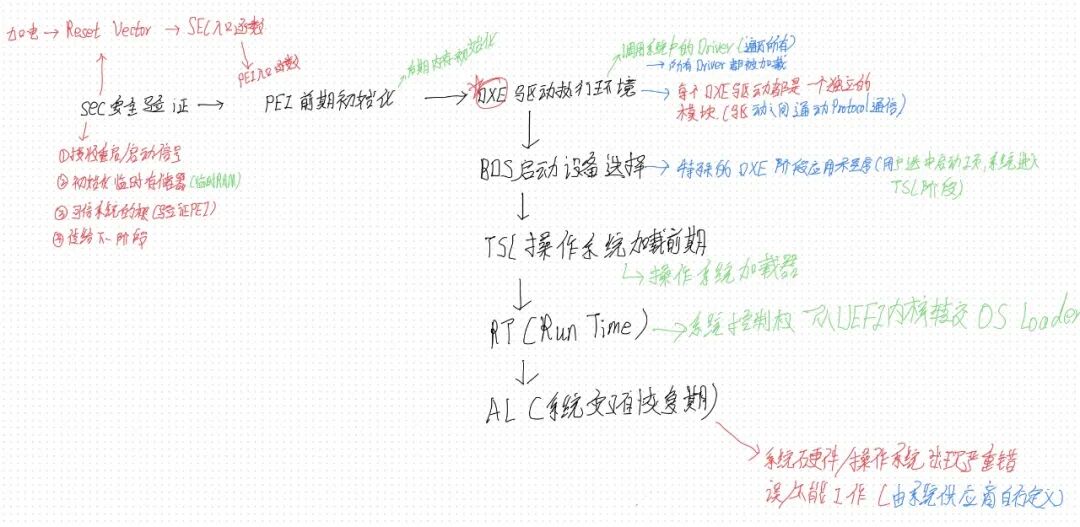 加电→Reset Vector → SEC入口函数
PEI入口函数
SEC安全验证 → PEI 前期初始化 → DXE 驱动执行环境
后期内存初始化
调用系统中的Driver(遍历所有)
→所有Driver都被加载
→每个DXE驱动都是一个独立的
模块(驱动之间通过Protocol通信)
①接收重启/启动信号
②初始化临时存储器(临时RAM)
③可信系统的根(验证PEI)
④传给下一阶段
BDS启动设备选择 → 特殊的DXE阶段应用程序(用户选中启动项,系统进入
TSL阶段)
TSL操作系统加载前期
→操作系统加载器
RT(Run Time) → 系统控制权 从UEFI内核转交 OS Loader
AL(系统灾难恢复期)
系统硬件/操作系统出现严重错
误不能工作(由系统供应商自行定义)